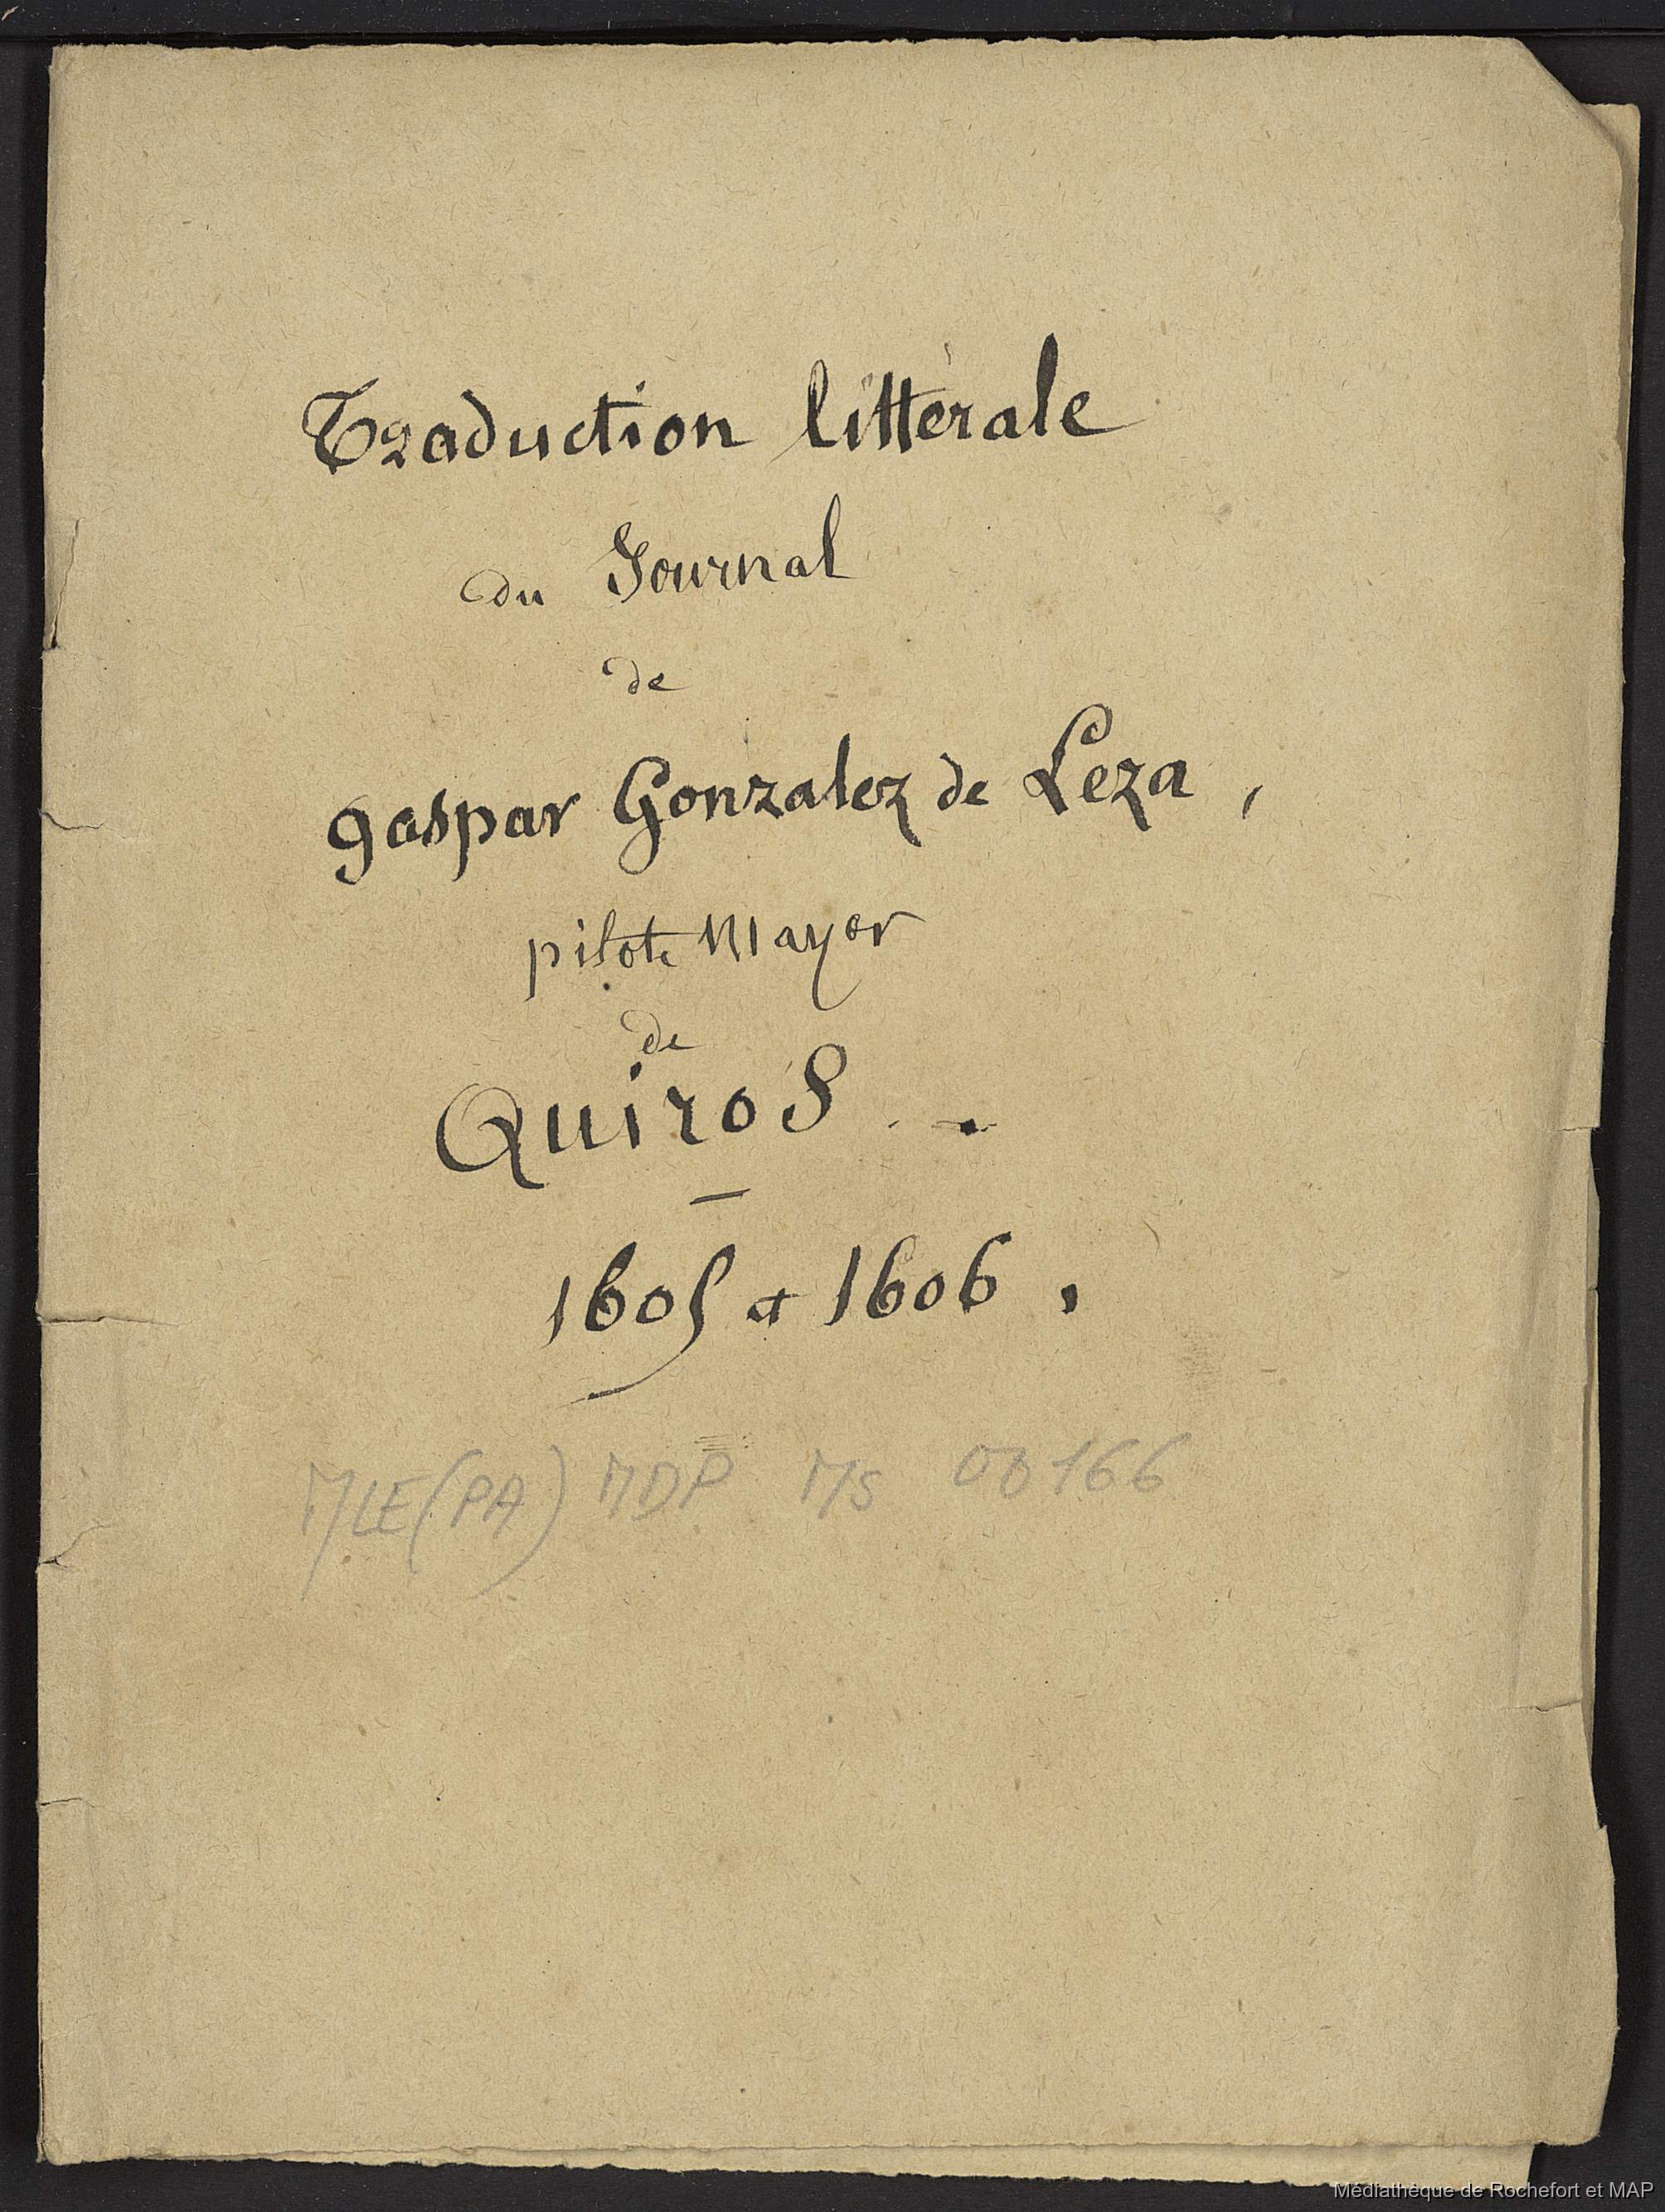 Traduction littérale
du Journal
de
gaspar Gonzalez de Leza,
pilote Mayor
de
Quiros.
1605 et 1606.
MLE(PA) MDP Ms 00166
Médiathèque de Rochefort et MAP